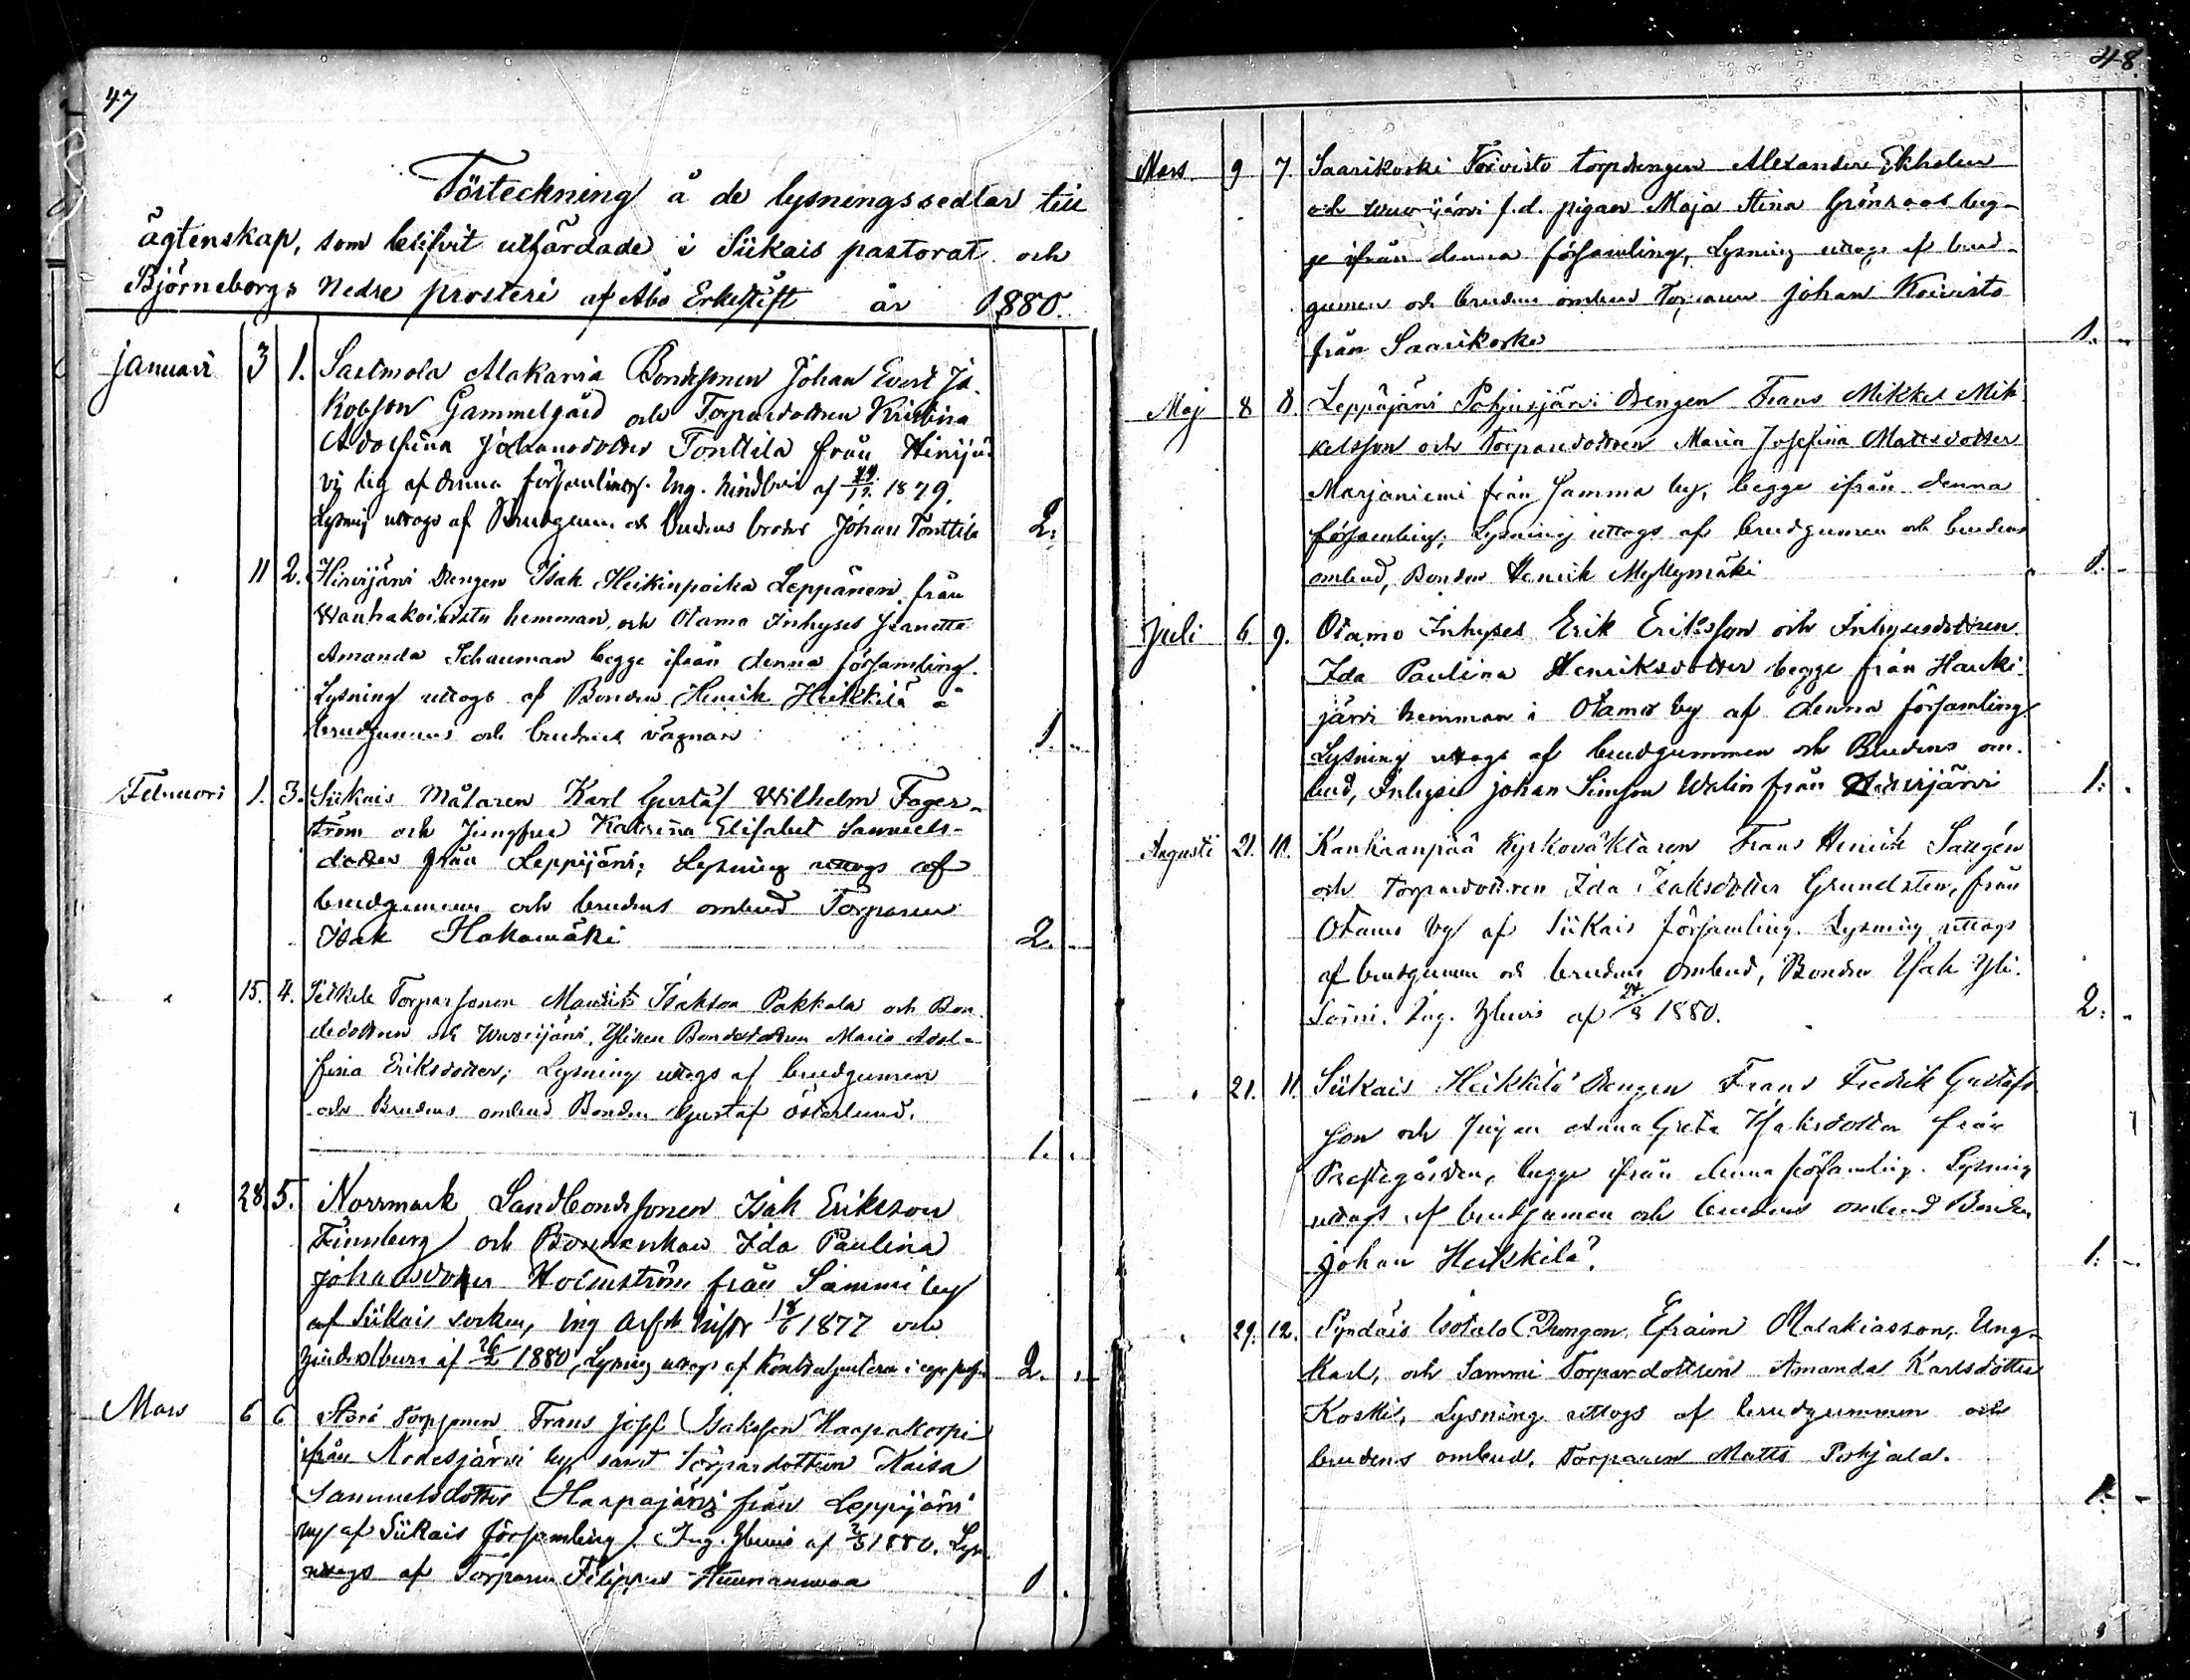 47
Förteckning å de lysningssedlar till
ägtenskap, som blifvit utfärdade i Siikais pastorat och
Björneborgs Nedre prosteri af Åbo Erkestift år 1880.
Januari 3 1. Sastmola Alakarvia Bondesonen Johan Evert Ja-
kobsson Gammelgård och Torparedottren Kristina
Adolfina Johansdotter Tonttila från Hirvijär-
vi by af denna församling. Ing. hindbevis af 29/12 1879.
Lysning uttogs af Brudgum och brudens broder Johan Tonttila 2.
11 2. Hirvijärvi Drengen Isak Heikinpoika Leppänen från
Wanhakoivisto hemman, och Otamo Inhyses Jeanetta
Amanda Schauman begge ifrån denna församling.
Lysning uttogs af Bonden Henrik Heikkilä å
brudgummens och brudens vägnar 1. -
Februari 1. 3. Siikais Målaren Karl Gustaf Wilhelm Fager-
ström och Jungfru Katrina Elisabet Samuels-
dotter från Leppijärvi; Lysning uttogs af
brudgummen och brudens ombud Torparen
Isak Hakamäki 2. -
15. 4. Torparsonen Maurits Isakson Pakkala och Bon-
dedottren Bondedottren Maria Adol-
fina Eriksdotter; Lysning uttogs af brudgummen
och Brudens ombud Bonden Gustaf Österlund.
1. -
28. 5. Norrmark Landbondesonen Isak Eriksson
Finnberg och Bondenkan Ida Paulina
Johansdotter Holmström från Sammi by
af Siikais socken, Ing 18/6 1877 och
af 26/2 1880, Lysning uttogs af Kontrahenterna i egen person 2. -
Mars 6 6 Torpsonen Frans Josef Isaksson Haapakorpi
ifrån by samt torpardottren Kaisa
Samuelsdotter Haapajärvi från Leppijärvi
by af Siikais församling. Ing. Hbevis af 2/3 1880. Lysn.
uttogs af Torparen Filippus 1 .
48.
Mars 9 7. Saarikoski Koivisto torpdrengen Alexander Ekholm
och f.d. pigan Maja Stina Grönroos beg-
ge ifrån denna församling, Lysning uttogs af brud-
gumen och brudens ombud Torparen Johan Koivisto
från Saarikoski 1. -
Maj 8 8. Leppäjärvi Pohjusjärvi Drengen Frans Mikkel Mik-
kelsson och Torparedottren Maria Josefina Mattsdotter
Marjaniemi från samma by, begge ifrån denna
församling; Lysning uttogs af brudgumen och brudens
ombud, Bonden Henrik Myllymäki 1. -
Juli 6. 9. Otamo Inhyses Erik Eriksson och Inhysesdottren
Ida Paulina Henriksdotter begge från Hauki-
järvi hemman i Otamo by af denna församling
Lysning uttogs af brudgummen och Brudens om-
bud, Inhyse Johan Simson Walin från Hirvijärvi 1. -
Augusti 21. 10. Kankaanpää Kyrkoväktaren Frans Henrik
och torparedottren Ida Isaksdotter Grundsten, från
Otamo by af Siikais församling. Lysning uttogs
af brudgumen och brudens Ombud, Bonden Isak Yli-
Ing. Hbevis af 21/8 1880. 2. -
21. 11. Siikais Heikkilä Drengen Frans Fredrik Gustafs-
son och Pigan Anna Greta Isaksdotter från
Prestegården, begge ifrån denna församling. Lysning
uttogs af brudgumen och brudens ombud Bonden
Johan Heikkilä. 1. -
29. 12. Isotalo Drengen Efraim Malakiasson, Ung-
karl, och Sammi Torpardottren Amanda Karlsdotter
Koski, Lysning uttogs af brudgummen och
brudens ombud, Torparen Matts Pohjala.
1. -